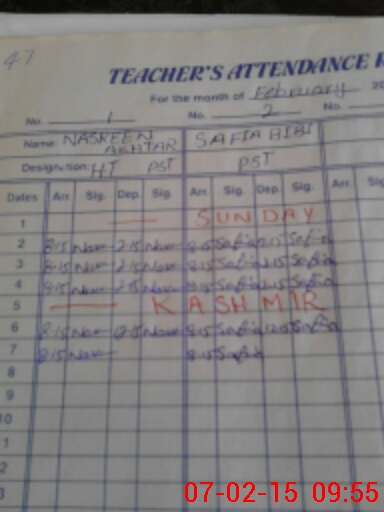 47
TEACHER'S ATTENDANCE
For the month of February 20
No. 1 No. 2 No.
Name: NASREEN AKHTAR SAFIA BIBI
Designation: HT PST PST
Dates Arr. Sig. Dep. Sig. Arr. Sig. Dep. Sig. Arr. Sig
1 SUNDAY
2 8-15 Nas 2-15 Nas 8-15 Safia 2-15 Safia
3 8-15 Nas 2-15 Nas 8-15 Safia 2-15 Safia
4 8-15 Nas 2-15 Nas 8-15 Safia 2-15 Safia
5 KASHMIR
6 8-15 Nas 12-15 Nas 8-15 Safia 12-15 Safia
7 8-15 Nas 8-15 Safia
8
9
10
1
2
07-02-15 09:55